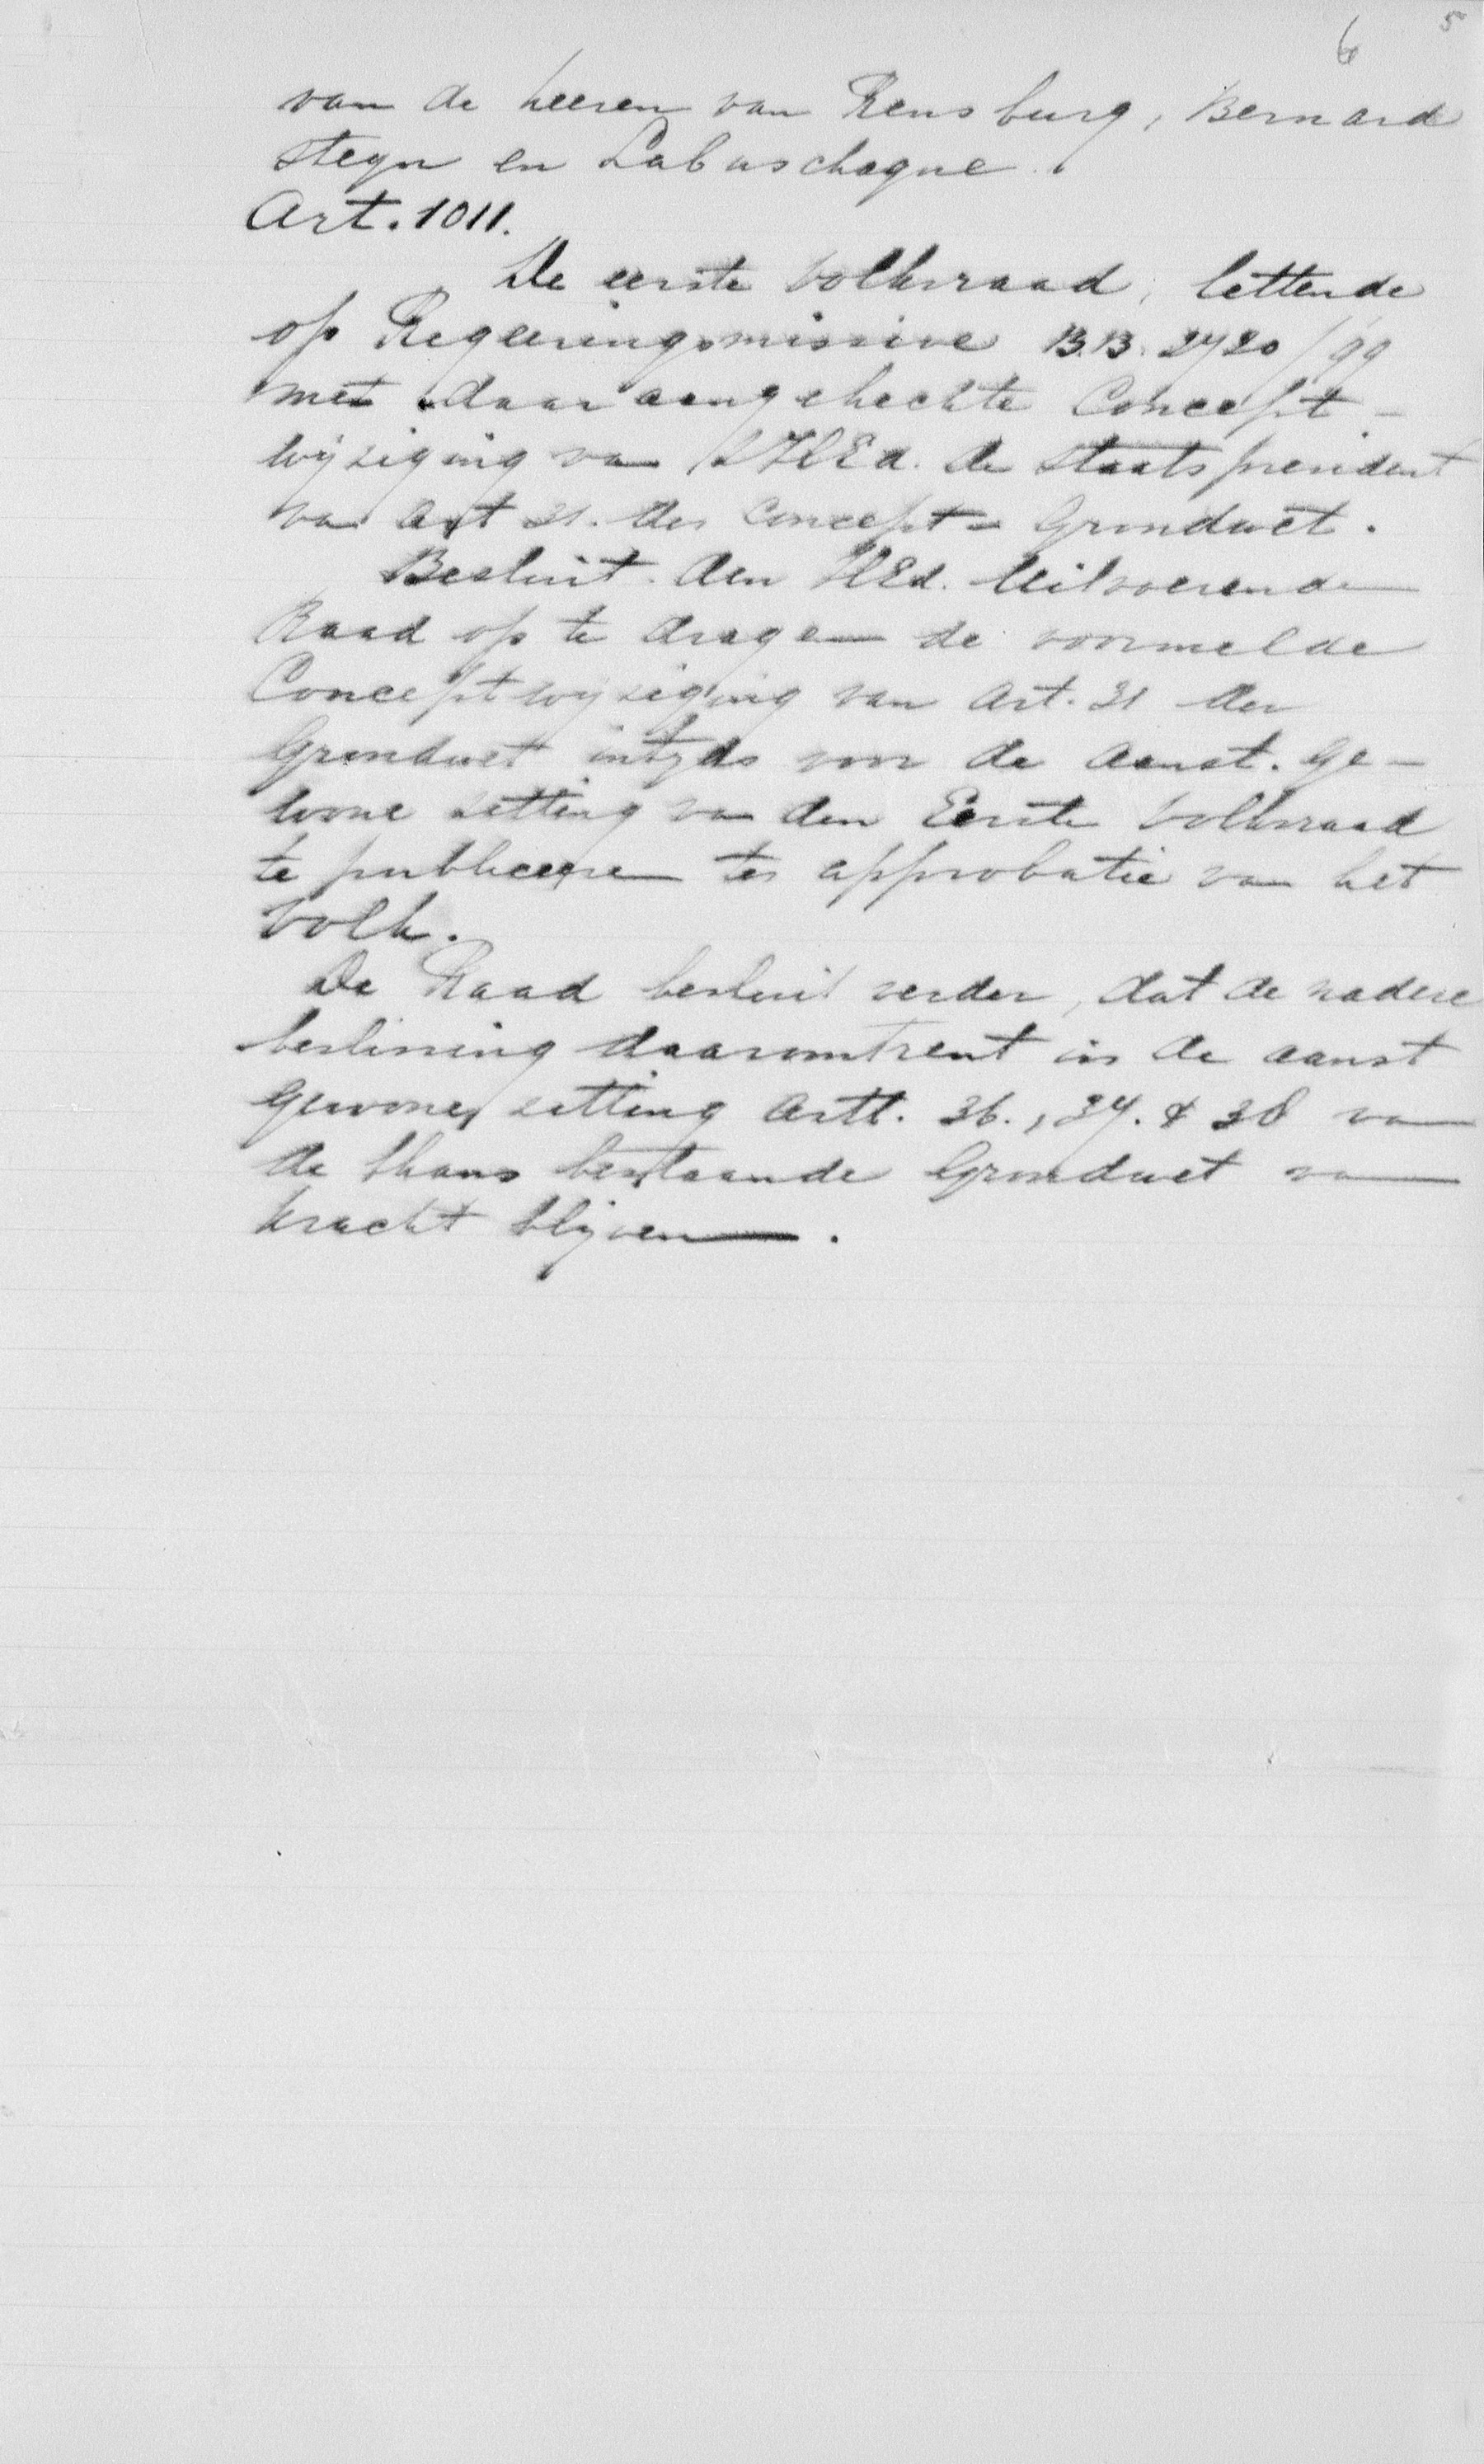 6 5
van de heeren van Rensburg, Bernard
Steyn en Labuschagne.
Art. 1011.
De eerste Volksraad, lettende
op Regeeringsmissive B.B. 2720/99
met daaraangehechte Concept-
wijziging van ZHEd. de Staatspresident
van Art 31. der Concept-Grondwet.
Besluit den HEd. Uitvoerende
Raad op te dragen de voormelde
Conceptwijziging van Art. 31 der
Grondwet intyds voor de aanst. ge-
wone zitting van den Eerste Volksraad
te publiceeren ter approbatie van het
Volk.
De Raad besluit verder, dat de nadere
beslissing daaromtrent in de aanst
gewone zitting Artt. 36., 37. & 38 van
de thans bestaande Grondwet van
kracht blijven.